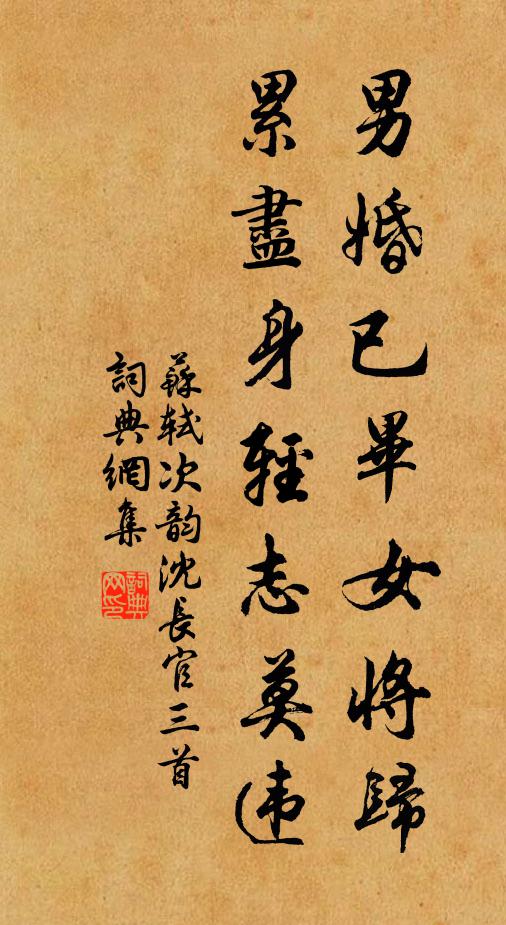 男婚已畢女將歸
累盡身輕志莫违
蘇軾次韵沈長官三首
詞典網集
詞典网印